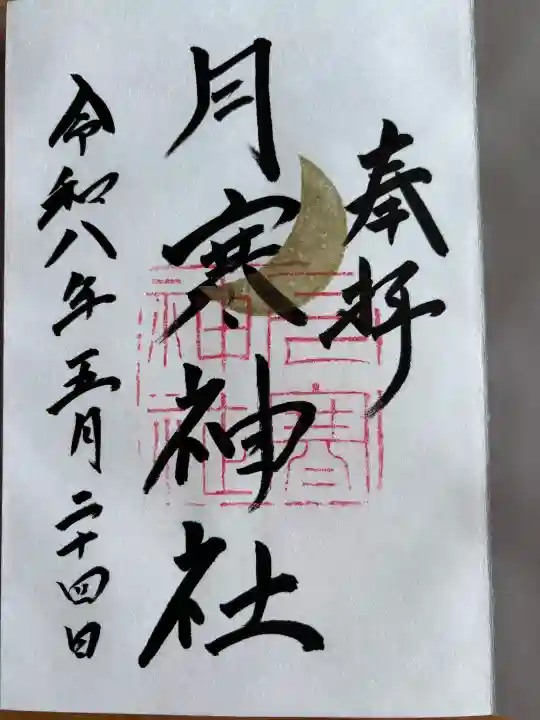 奉拝
月寒神社
月寒神社
令和八年五月二十四日